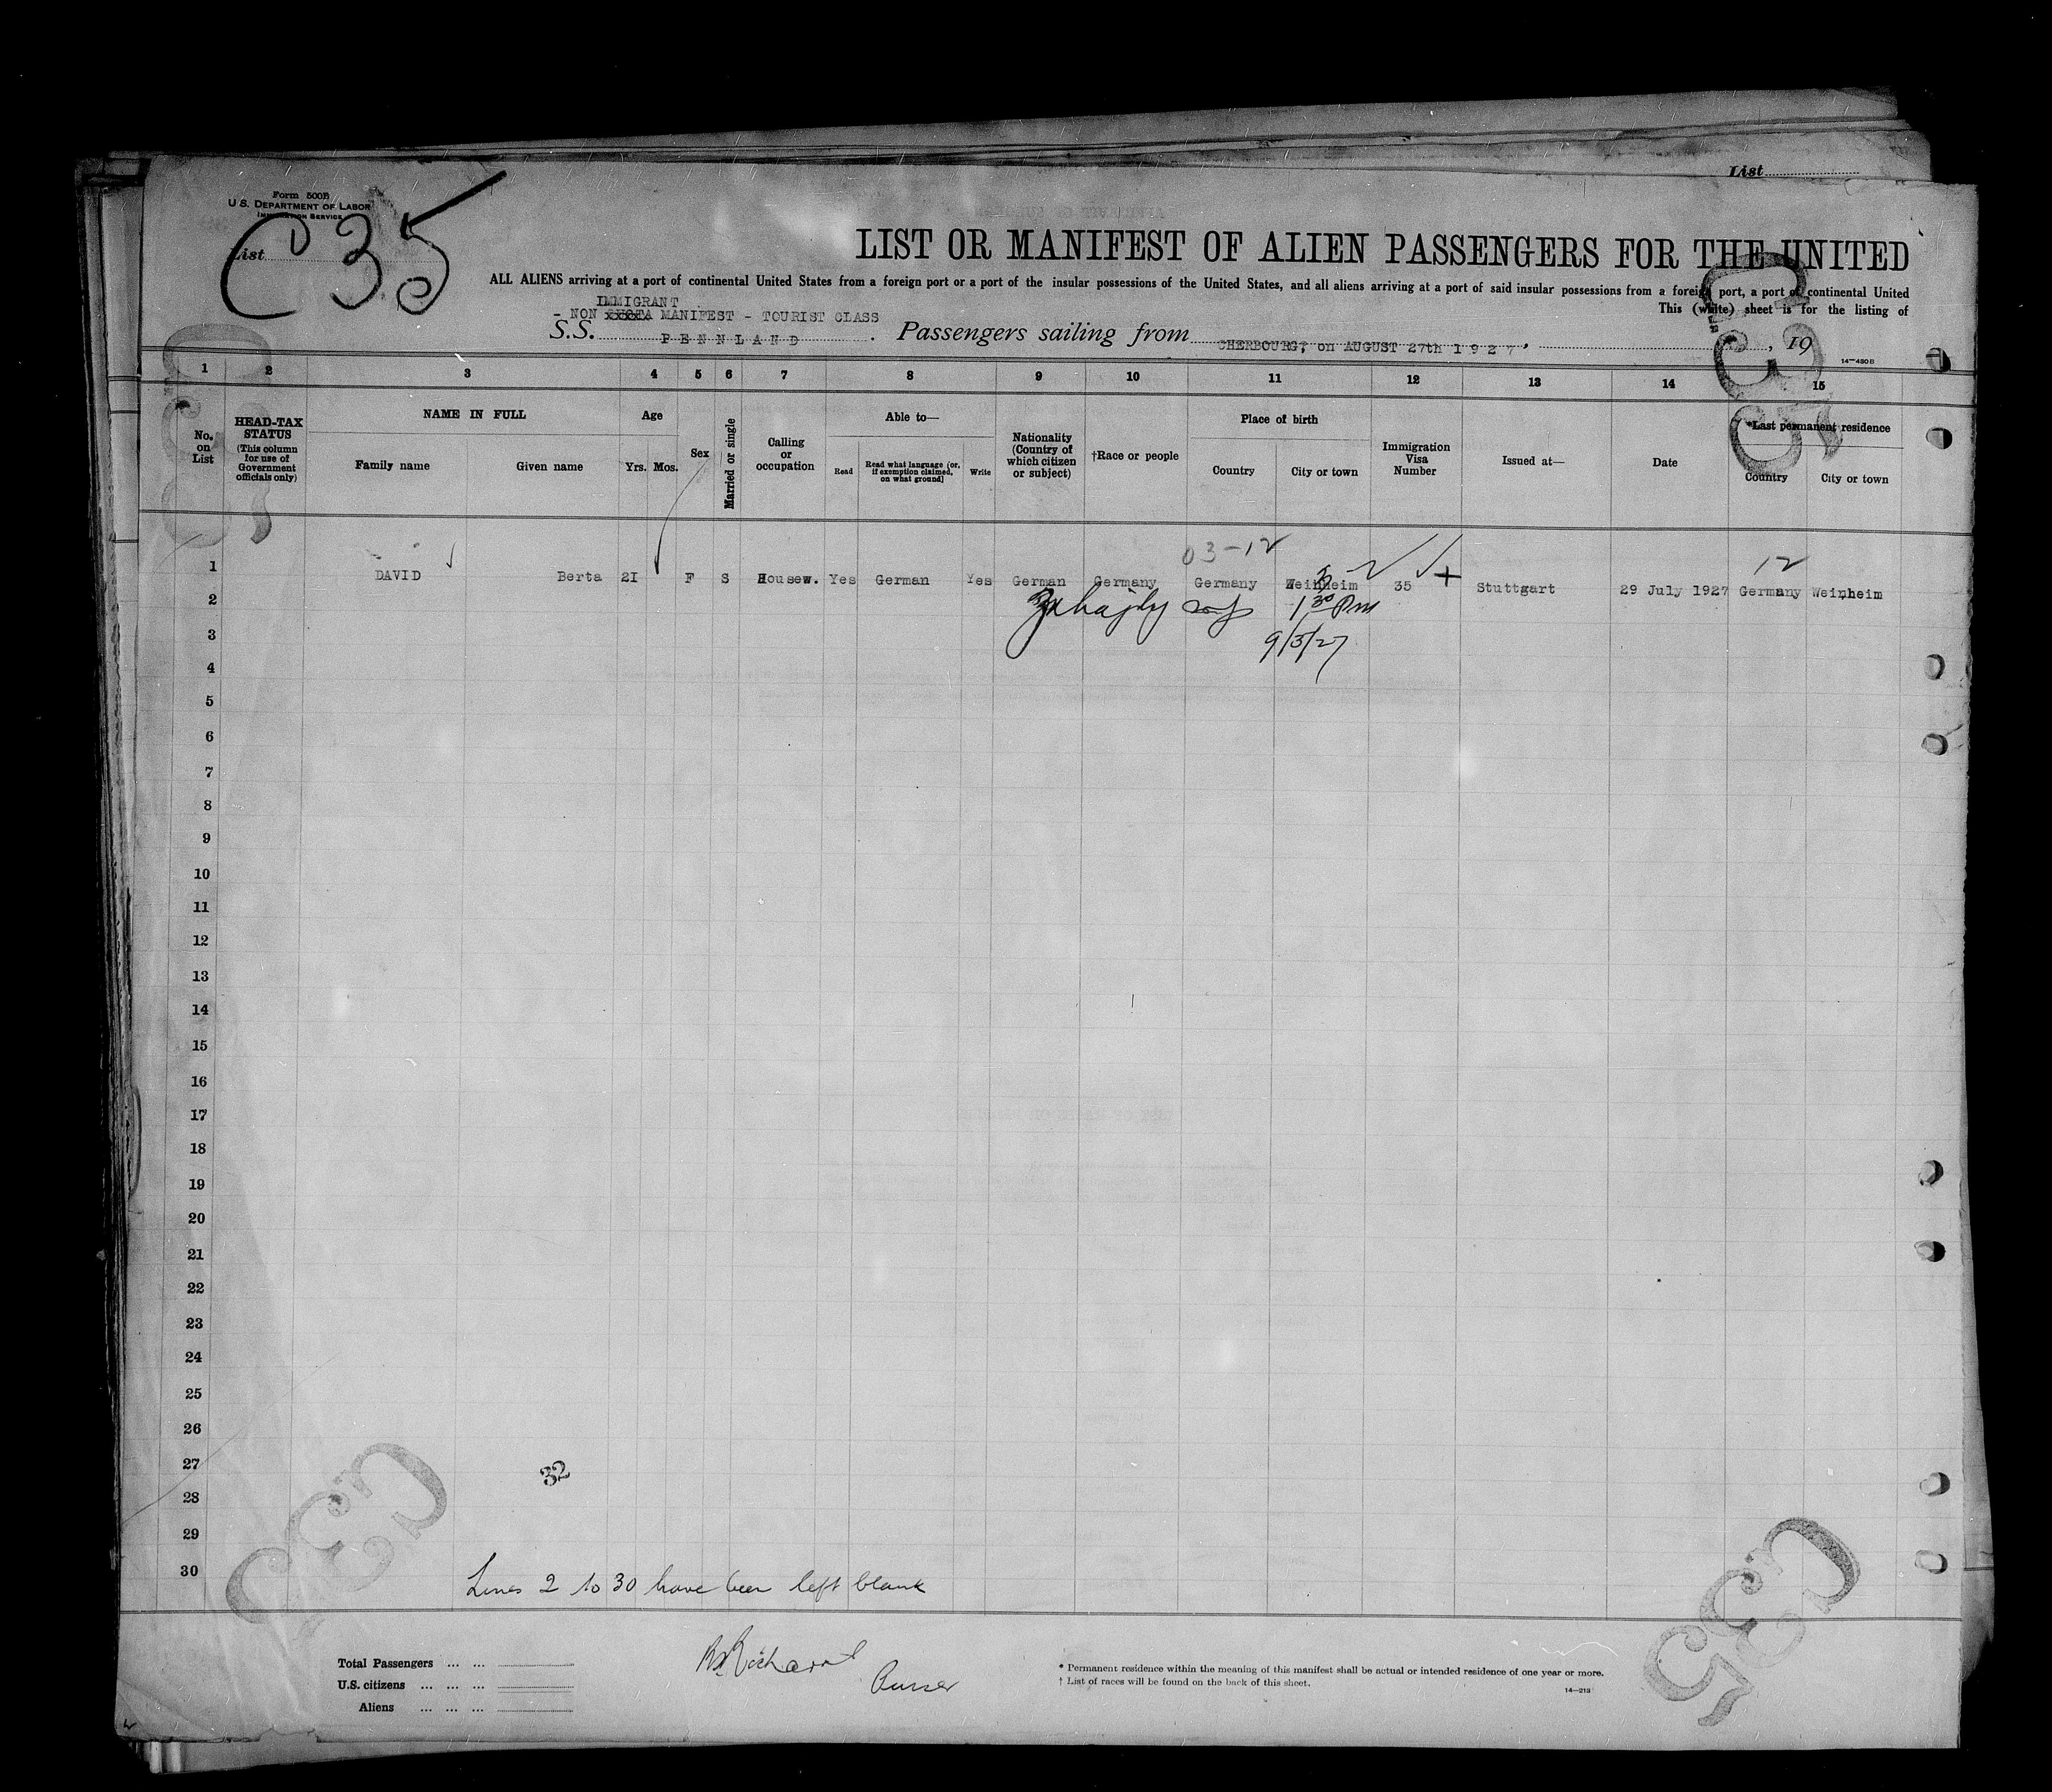 List
Form 500B
U.S. DEPARTMENT OF LABOR
IMMIGRATION SERVICE
List
C 35
LIST OR MANIFEST OF ALIEN PASSENGERS FOR THE UNITED
ALL ALIENS arriving at a port of continental United States from a foreign port or a port of the insular possessions of the United States, and all aliens arriving at a port of said insular possessions from a foreign port, a port of continental United
This (white) sheet is for the listing of
IMMIGRANT
- NON MANIFEST - TOURIST CLASS
S.S. PENNLAND. Passengers sailing from CHERBOURG, on AUGUST 27th 1927, , 19
14-430B
1 2 3 4 5 6 7 8 9 10 11 12 13 14 15
No. on List
HEAD-TAX STATUS
(This column for use of Government officials only)
NAME IN FULL
Family name Given name
Age
Yrs. Mos.
Sex
Married or single
Calling or occupation
Able to—
Read Read what language (or, if exemption claimed, on what ground) Write
Nationality (Country of which citizen or subject)
†Race or people
Place of birth
Country City or town
Immigration Visa Number
Issued at—
Date
*Last permanent residence
Country City or town
03-12 12
1 DAVID Berta 21 F S Housew. Yes German Yes German Germany Germany Weinheim 35 Stuttgart 29 July 1927 Germany Weinheim
1 30 Pm
9/3/27
2
3
4
5
6
7
8
9
10
11
12
13
14
15
16
17
18
19
20
21
22
23
24
25
26
27
28
29
30
32
Lines 2 to 30 have been left blank
C35
C35
C35
C35
Total Passengers ... ...
U.S. citizens ... ... ...
Aliens ... ... ...
Purser
* Permanent residence within the meaning of this manifest shall be actual or intended residence of one year or more.
† List of races will be found on the back of this sheet.
14-213